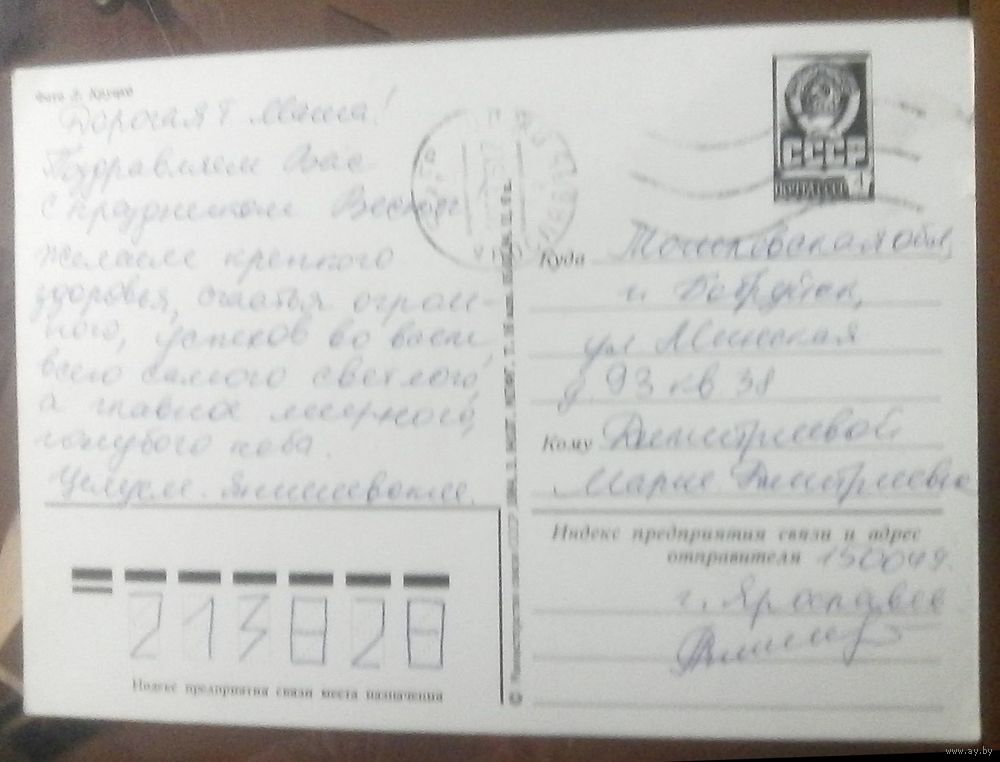 Дорогая т. Маша!
Поздравляем Вас
с праздником Весны
желаем крепкого
здоровья, счастья огром-
ного, успехов во всем,
всего самого светлого,
а главное мирного,
голубого неба.
Целуем.
СССР
Куда Могилевская обл,
г. Бобруйск,
ул Минская
д. 93 кв 38
Кому Дмитриевой
Марие Дмитриевне
Индекс предприятия связи и адрес
отправителя 150049.
г. Ярославль
213828
Индекс предприятия связи места назначения
www.ay.by